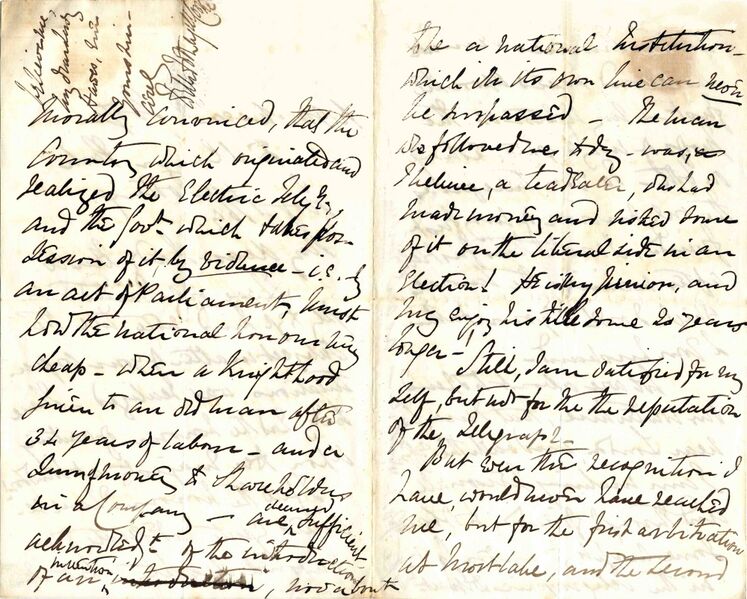 I believe,
my dear lady
Hawes, ever
yours sin-
cerely
Morally convinced, that the
Country which originated and
realized the Electric Tely.,
and the Govt. which takes pos-
session of it, by violence - i.e. by
an act of Parliament, must
hold the national honour very
cheap - when a Knighthood
given to an old man after
34 years of labour - and a
sum of money to shareholders
in a Company - are deemed sufficient
acknowledgt. of the introduction
of an invention, now about
to be a national Institution
which in its own line can never
be surpassed - The man
who followed me that day - was, as
I believe, a tea dealer, who had
made money and risked some
of it on the liberal side in an
Election! He is my junior, and
may enjoy his title some 20 years
longer -!
Still, I am satisfied for my
self, but not for the the reputation
of the Telegraph -
But even the recognition I
have, would never have reached
me, but for the first arbitration
at Mortlake, and the second